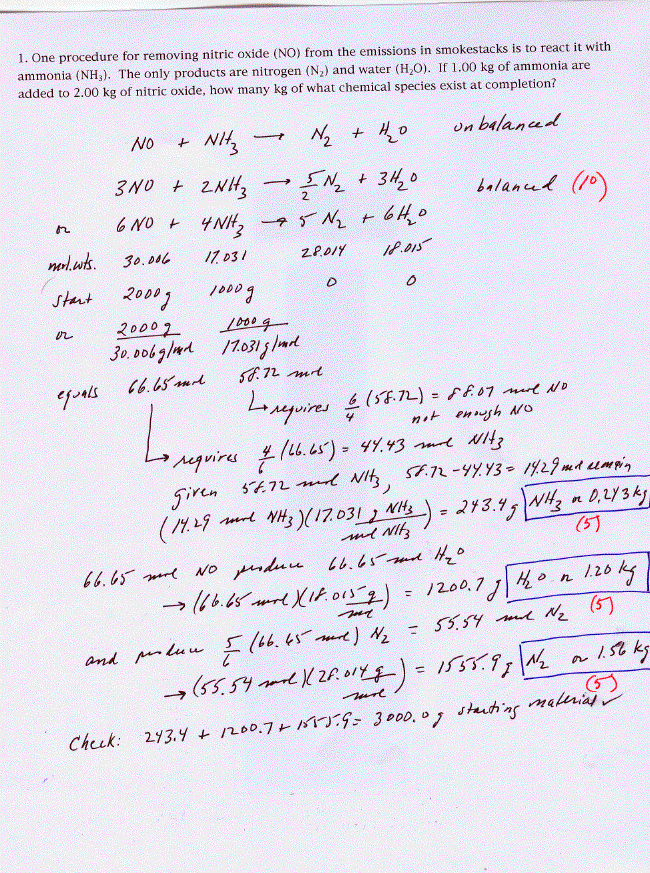 1. One procedure for removing nitric oxide (NO) from the emissions in smokestacks is to react it with
ammonia (NH₃). The only products are nitrogen (N₂) and water (H₂O). If 1.00 kg of ammonia are
added to 2.00 kg of nitric oxide, how many kg of what chemical species exist at completion?
NO + NH₃ → N₂ + H₂O unbalanced
3NO + 2NH₃ → 5/2 N₂ + 3H₂O balanced (10)
or 6NO + 4NH₃ → 5 N₂ + 6H₂O
mol.wts. 30.006 17.031 28.014 18.015
start 2000g 1000g 0 0
or 2000g / 30.006g/mol 1000g / 17.031g/mol
equals 66.65 mol 58.72 mol
requires 6/4 (58.72) = 88.07 mol NO
not enough NO
requires 4/6 (66.65) = 44.43 mol NH₃
given 58.72 mol NH₃, 58.72-44.43 = 14.29 mol remain
(14.29 mol NH₃)(17.031 g NH₃ / mol NH₃) = 243.4g NH₃ or 0.243kg
(5)
66.65 mol NO produce 66.65 mol H₂O
→ (66.65 mol)(18.015 g / mol) = 1200.7g H₂O or 1.20 kg
(5)
and produce 5/6 (66.65 mol) N₂ = 55.54 mol N₂
→ (55.54 mol)(28.014 g / mol) = 1555.9g N₂ or 1.56 kg
(5)
Check: 243.4 + 1200.7 + 1555.9 = 3000.0g starting material ✓